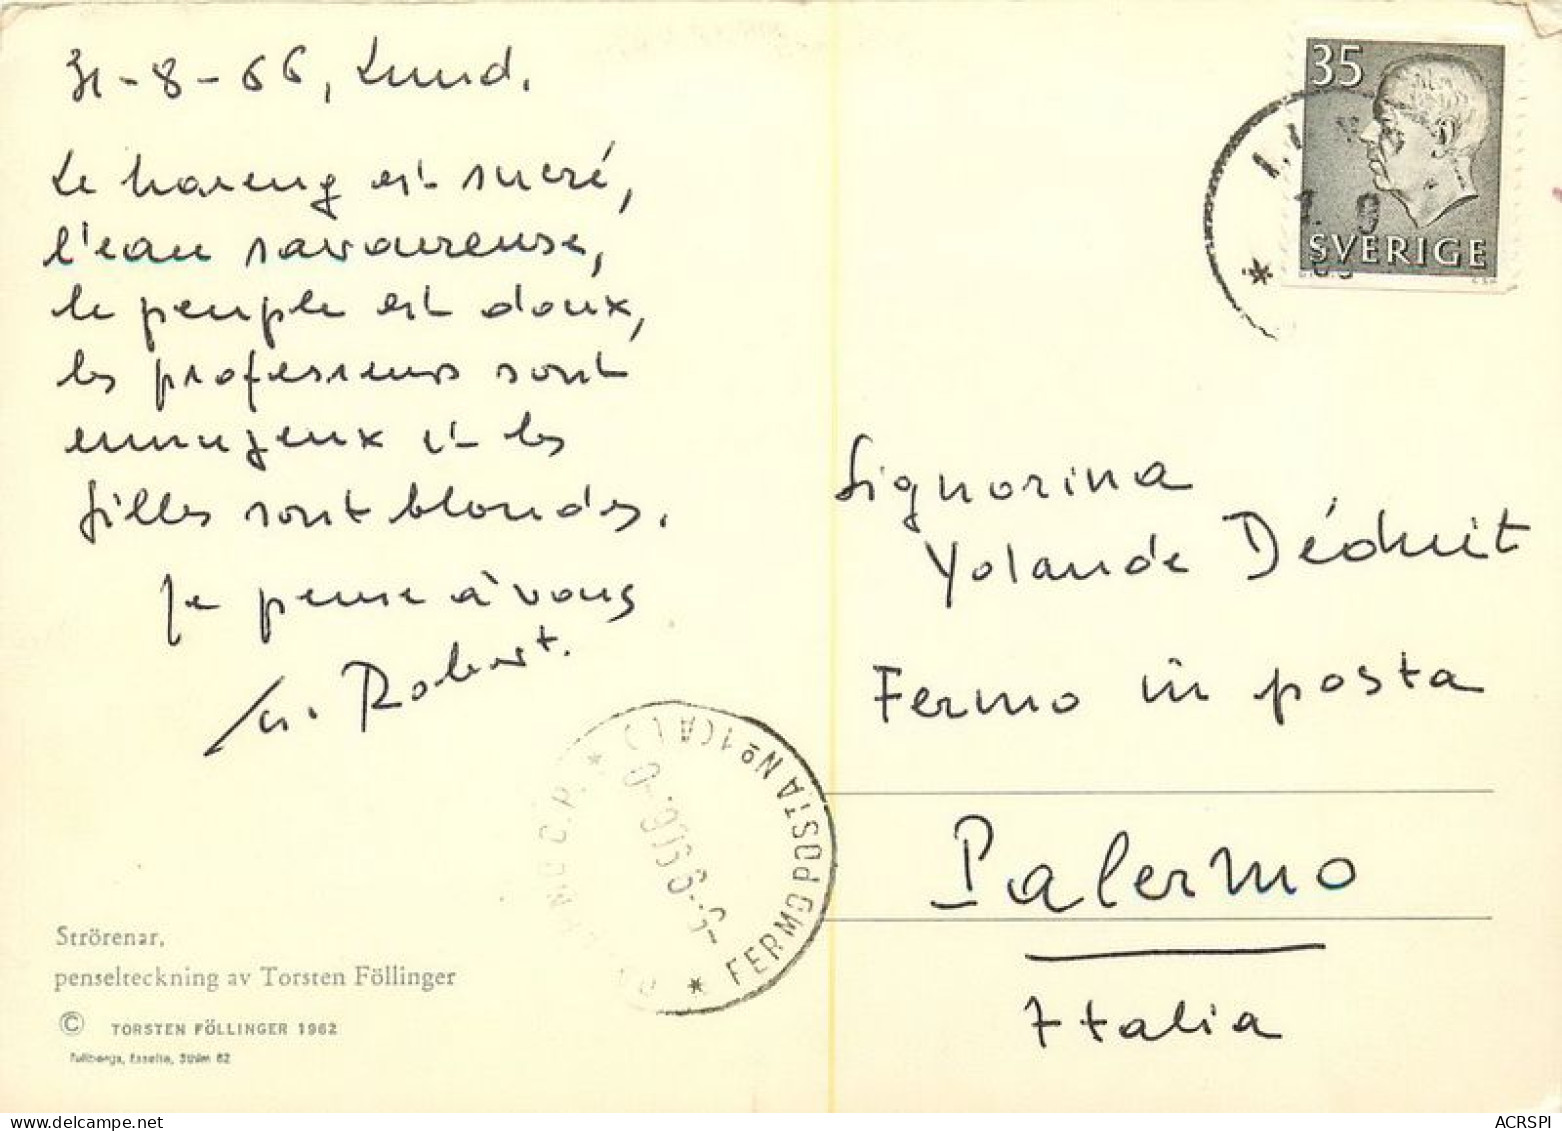 31-8-66, Lund.
Le hareng est sucré,
l'eau savoureuse,
le peuple est doux,
les professeurs sont
ennuyeux et les
filles sont blondes.
Je pense à vous
Robert.
35
SVERIGE
Signorina
Yolande Déduit
Fermo in posta
Palermo
Italia
FERMO POSTA No 1 (A
Strörenar,
penselteckning av Torsten Föllinger
© TORSTEN FÖLLINGER 1962
ACRSPI